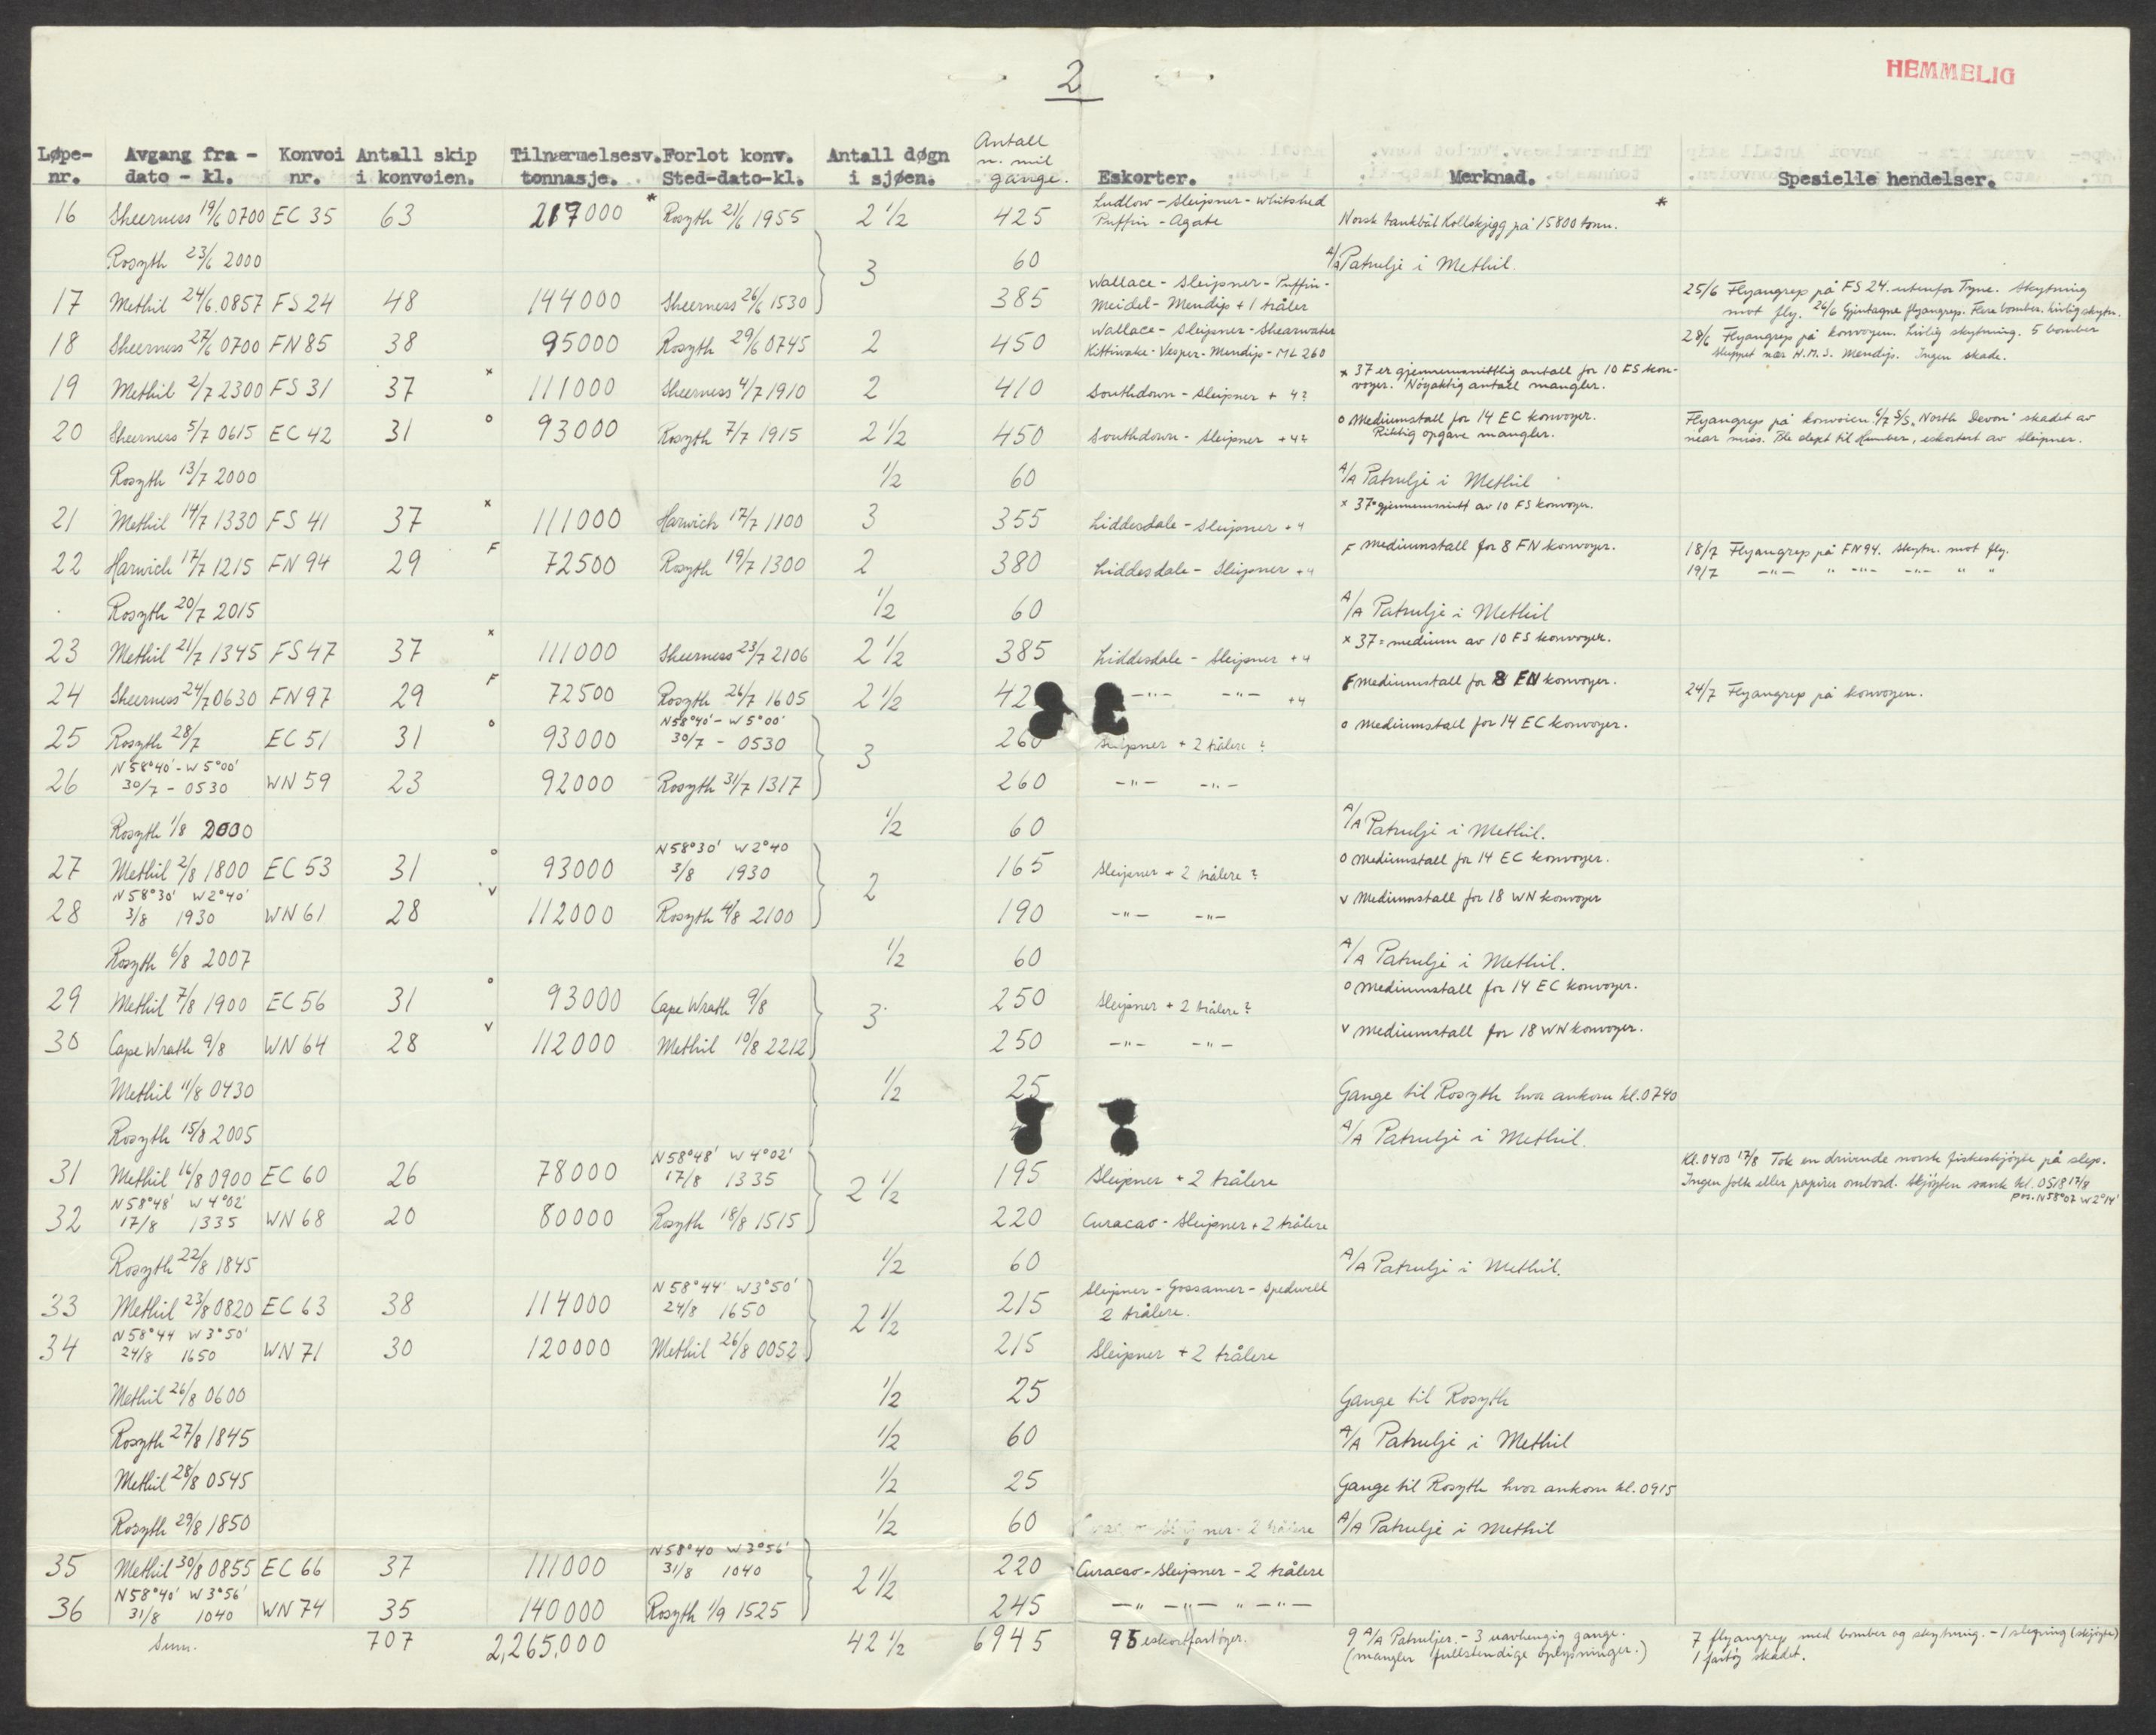 2
HEMMELIG
Løpe-nr. Avgang fra - dato - kl. Konvoi nr. Antall skip i konvoien. Tilnærmelsesv. tonnasje. Forlot konv. Sted-dato-kl. Antall døgn i sjøen. Antall n. mil gange. Eskorter. Merknad. Spesielle hendelser.
16 Sheerness 19/6 0700 EC 35 63 217000 * Rosyth 21/6 1955 2 1/2 425 Ludlow - Sleipner - Whitshed Puffin - Agate * Norsk tankbåt Kollskjegg på 15800 tonn.
Rosyth 23/6 2000 3 60 A/A Patrulje i Methil.
17 Methil 24/6 0857 FS 24 48 144000 Sheerness 26/6 1530 385 Wallace - Sleipner - Puffin - Meidel - Mendip + 1 tråler 25/6 Flyangrep på FS 24 utenfor Tyne. Skytning mot fly. 26/6 Gjentagne flyangrep. Flere bomber. Livlig skytn.
18 Sheerness 27/6 0700 FN 85 38 95000 Rosyth 29/6 0745 2 450 Wallace - Sleipner - Shearwater Kittiwake - Vesper - Mendip - ML 260 28/6 Flyangrep på konvoyen. Livlig skytning. 5 bomber sluppet nær H.M.S. Mendip. Ingen skade.
19 Methil 2/7 2300 FS 31 37 x 111000 Sheerness 4/7 1910 2 410 Southdown - Sleipner + 4? x 37 er gjennemsnittlig antall for 10 FS konvoyer. Nøyaktig antall mangler.
20 Sheerness 5/7 0615 EC 42 31 o 93000 Rosyth 7/7 1915 2 1/2 450 Southdown - Sleipner + 4? o Mediumstall for 14 EC konvoyer. Riktig opgave mangler. Flyangrep på konvoien 6/7 S/S „North Devon" skadet av near miss. Ble slept til Humber, eskortert av Sleipner.
Rosyth 13/7 2000 1/2 60 A/A Patrulje i Methil
21 Methil 14/7 1330 FS 41 37 x 111000 Harwich 17/7 1100 3 355 Liddesdale - Sleipner + 4 x 37 = gjennemsnitt av 10 FS konvoyer.
22 Harwich 17/7 1215 FN 94 29 F 72500 Rosyth 19/7 1300 2 380 Liddesdale - Sleipner + 4 F Mediumstall for 8 FN konvoyer. 18/7 Flyangrep på FN 94. Skytn. mot fly.
19/7 -"- " -"- -"- " "
Rosyth 20/7 2015 1/2 60 A/A Patrulje i Methil
23 Methil 21/7 1345 FS 47 37 x 111000 Sheerness 23/7 2106 2 1/2 385 Liddesdale - Sleipner + 4 x 37 = medium av 10 FS konvoyer.
24 Sheerness 24/7 0630 FN 97 29 F 72500 Rosyth 26/7 1605 2 1/2 42 -"- -"- + 4 F Mediumstall for 8 FN konvoyer. 24/7 Flyangrep på konvoyen.
25 Rosyth 28/7 EC 51 31 o 93000 N 58°40' - W 5°00' 30/7 - 0530 3 260 Sleipner + 2 trålere ? o Mediumstall for 14 EC konvoyer.
26 N 58°40' - W 5°00' 30/7 - 0530 WN 59 23 92000 Rosyth 31/7 1317 260 -"- -"-
Rosyth 1/8 2000 1/2 60 A/A Patrulje i Methil.
27 Methil 2/8 1800 EC 53 31 o 93000 N 58°30' W 2°40 3/8 1930 2 165 Sleipner + 2 trålere ? o Mediumstall for 14 EC konvoyer.
28 N 58°30' W 2°40' 3/8 1930 WN 61 28 v 112000 Rosyth 4/8 2100 190 -"- -"- v Mediumstall for 18 WN konvoyer
Rosyth 6/8 2007 1/2 60 A/A Patrulje i Methil.
29 Methil 7/8 1900 EC 56 31 o 93000 Cape Wrath 9/8 3 250 Sleipner + 2 trålere ? o Mediumstall for 14 EC konvoyer.
30 Cape Wrath 9/8 WN 64 28 v 112000 Methil 10/8 2212 250 -"- -"- v Mediumstall for 18 WN konvoyer.
Methil 11/8 0430 1/2 25 Gange til Rosyth hvor ankom kl. 0740
Rosyth 15/8 2005 A/A Patrulje i Methil.
31 Methil 16/8 0900 EC 60 26 78000 N 58°48' W 4°02' 17/8 1335 2 1/2 195 Sleipner + 2 trålere Kl. 0400 17/8 Tok en drivende norsk fiskeskjøyte på slep. Ingen folk eller papirer ombord. Skjøyten sank kl. 0518 17/8 pos. N 58°07 W 2°14'
32 N 58°48' W 4°02' 17/8 1335 WN 68 20 80000 Rosyth 18/8 1515 220 Curacao - Sleipner + 2 trålere
Rosyth 22/8 1845 1/2 60 A/A Patrulje i Methil.
33 Methil 23/8 0820 EC 63 38 114000 N 58°44' W 3°50' 24/8 1650 2 1/2 215 Sleipner - Gossamer - Spedwell 2 trålere.
34 N 58°44 W 3°50' 24/8 1650 WN 71 30 120000 Methil 26/8 0052 215 Sleipner + 2 trålere
Methil 26/8 0600 1/2 25 Gange til Rosyth
Rosyth 27/8 1845 1/2 60 A/A Patrulje i Methil
Methil 28/8 0545 1/2 25 Gange til Rosyth hvor ankom kl. 0915
Rosyth 29/8 1850 1/2 60 A/A Patrulje i Methil
35 Methil 30/8 0855 EC 66 37 111000 N 58°40 W 3°56' 31/8 1040 2 1/2 220 Curacao - Sleipner - 2 trålere
36 N 58°40' W 3°56' 31/8 1040 WN 74 35 140000 Rosyth 1/9 1525 245 -" -"- " -"-
Sum. 707 2,265,000 42 1/2 6945 95 eskortfartøyer. 9 A/A Patruljer. - 3 uavhengig gange. (mangler fullstendige oplysninger.) 7 flyangrep med bomber og skytning. - 1 slepning (skjøyte) 1 fartøy skadet.